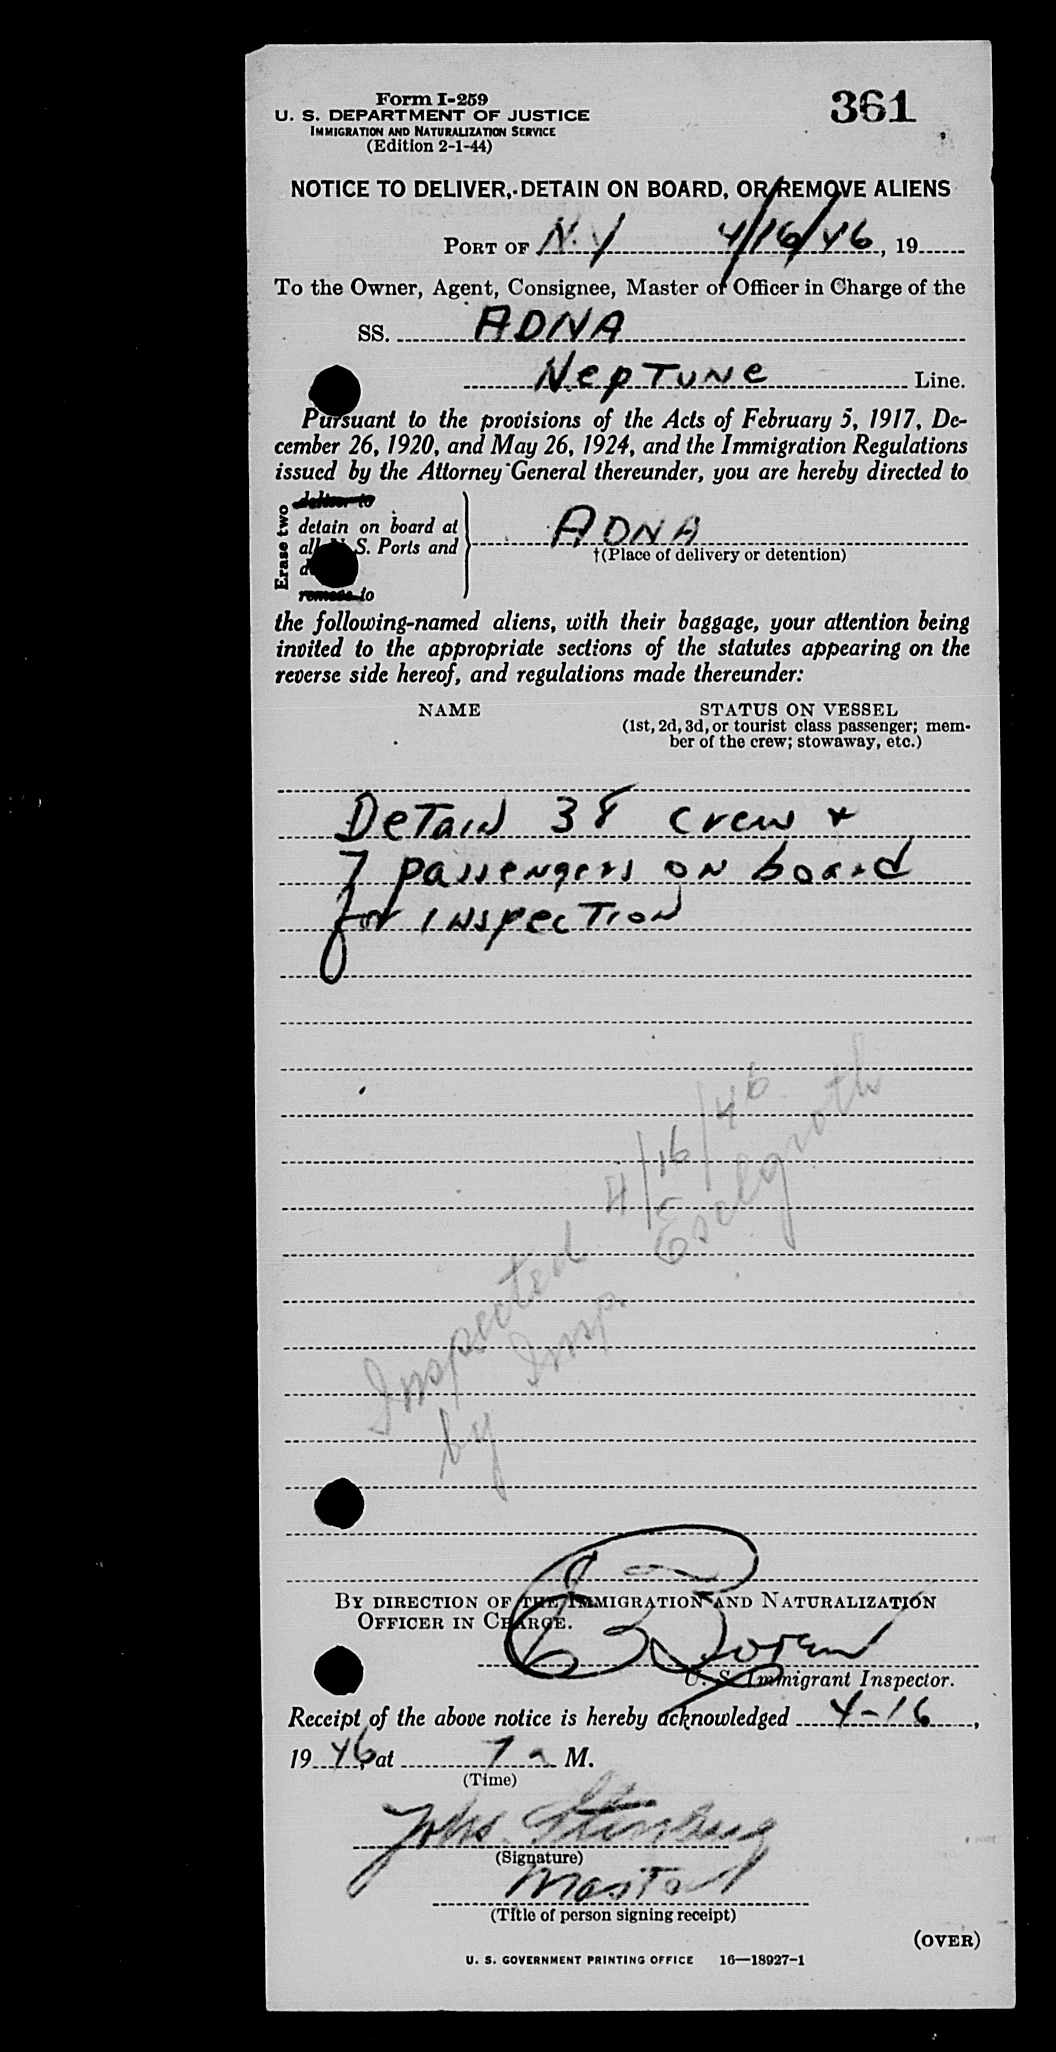 Form I-259
361
U. S. DEPARTMENT OF JUSTICE
IMMIGRATION AND NATURALIZATION SERVICE
(Edition 2-1-44)
NOTICE TO DELIVER, DETAIN ON BOARD, OR REMOVE ALIENS
PORT OF N.Y 4/16/46, 19
To the Owner, Agent, Consignee, Master or Officer in Charge of the
SS. ADNA
Neptune Line.
Pursuant to the provisions of the Acts of February 5, 1917, De-
cember 26, 1920, and May 26, 1924, and the Immigration Regulations
issued by the Attorney General thereunder, you are hereby directed to
Erase two
deliver to
detain on board at
all U. S. Ports and
ADNA
†(Place of delivery or detention)
remove to
the following-named aliens, with their baggage, your attention being
invited to the appropriate sections of the statutes appearing on the
reverse side hereof, and regulations made thereunder:
NAME STATUS ON VESSEL
(1st, 2d, 3d, or tourist class passenger; mem-
ber of the crew; stowaway, etc.)
Detain 38 crew +
7 passengers on board
for inspection
Inspected 4/16/46
by Insp.
BY DIRECTION OF THE IMMIGRATION AND NATURALIZATION
OFFICER IN CHARGE.
U. S. Immigrant Inspector.
Receipt of the above notice is hereby acknowledged 4-16,
1946, at 7 a M.
(Time)
(Signature)
Master
(Title of person signing receipt)
(OVER)
U. S. GOVERNMENT PRINTING OFFICE 16—18927-1